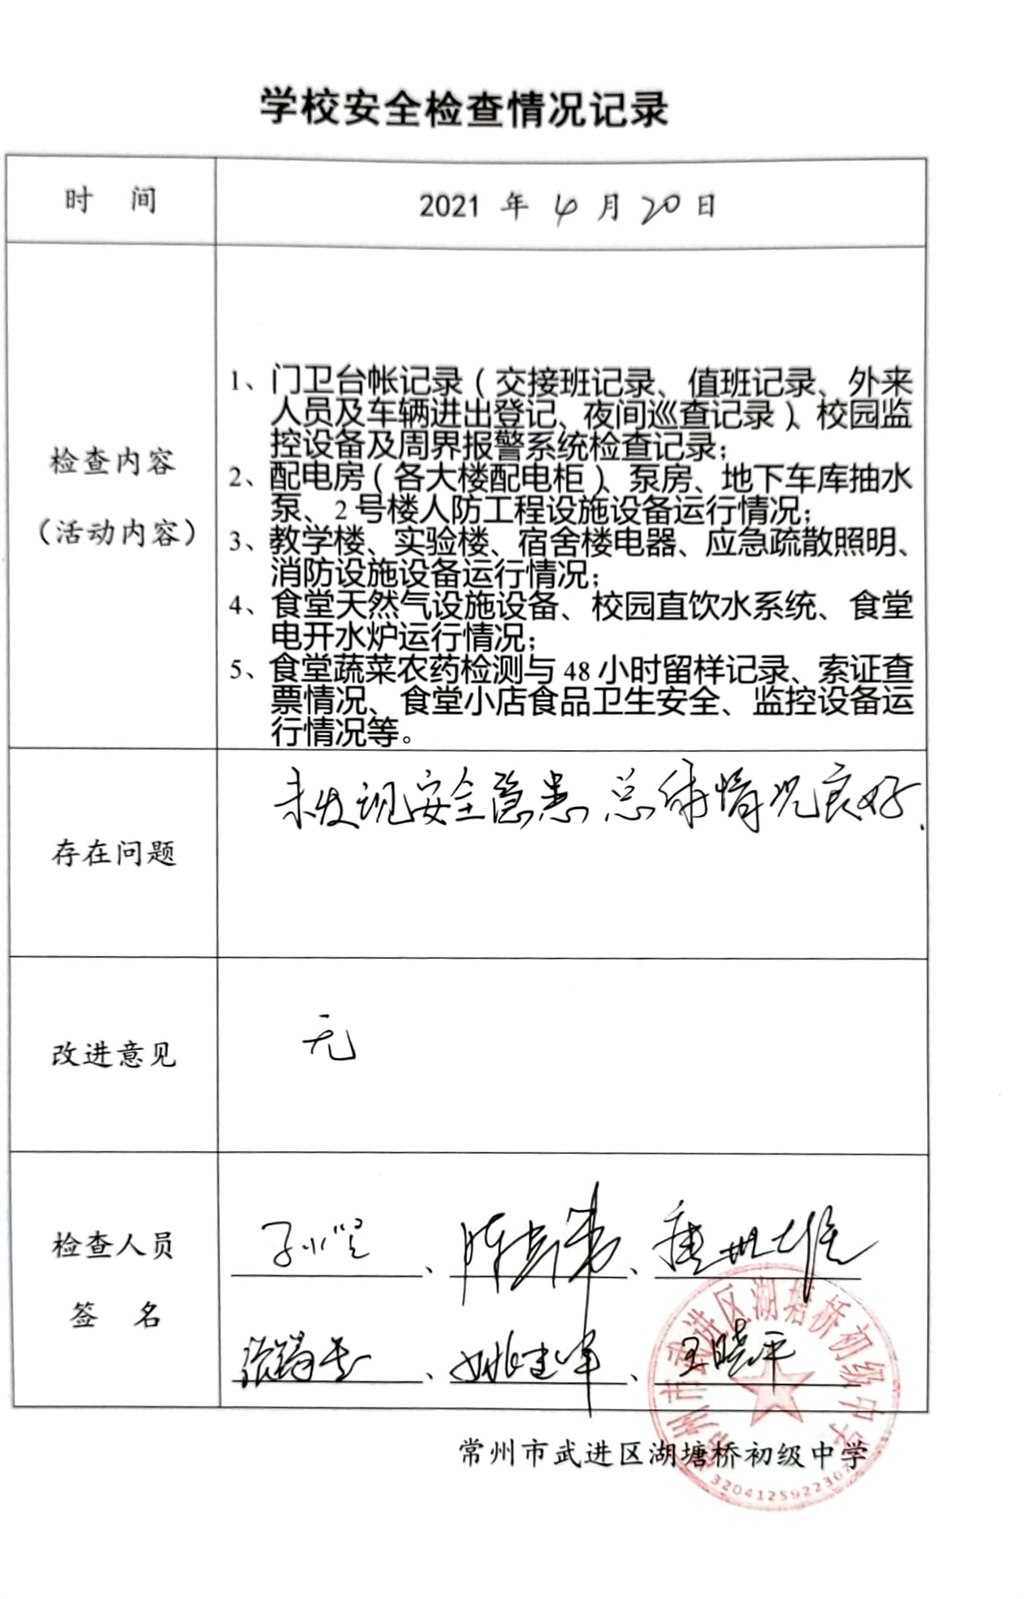 学校安全检查情况记录
时 间
2021 年 4 月 20 日
检查内容
（活动内容）
1、门卫台帐记录（交接班记录、值班记录、外来
人员及车辆进出登记、夜间巡查记录）、校园监
控设备及周界报警系统检查记录；
2、配电房（各大楼配电柜）、泵房、地下车库抽水
泵、2号楼人防工程设施设备运行情况；
3、教学楼、实验楼、宿舍楼电器、应急疏散照明、
消防设施设备运行情况；
4、食堂天然气设施设备、校园直饮水系统、食堂
电开水炉运行情况；
5、食堂蔬菜农药检测与 48 小时留样记录、索证查
票情况、食堂小店食品卫生安全、监控设备运
行情况等。
存在问题
未发现安全隐患 总体情况良好.
改进意见
无
检查人员
签 名
、 、
、姚建军、王晓平
常州市武进区湖塘桥初级中学
常州市武进区湖塘桥初级中学